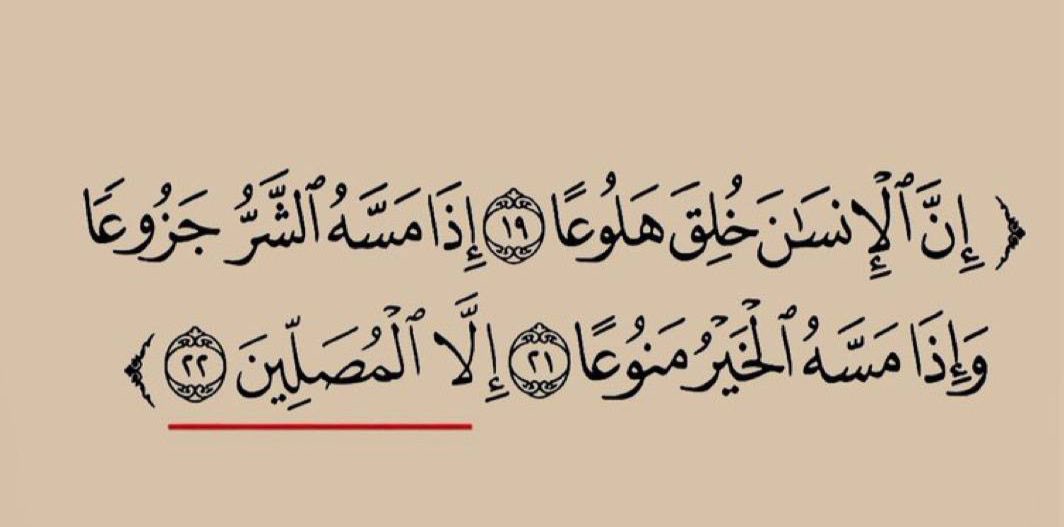 ﴿ إِنَّ ٱلْإِنسَٰنَ خُلِقَ هَلُوعًا ١٩ إِذَا مَسَّهُ ٱلشَّرُّ جَزُوعًا
وَإِذَا مَسَّهُ ٱلْخَيْرُ مَنُوعًا ٢١ إِلَّا ٱلْمُصَلِّينَ ٢٢ ﴾